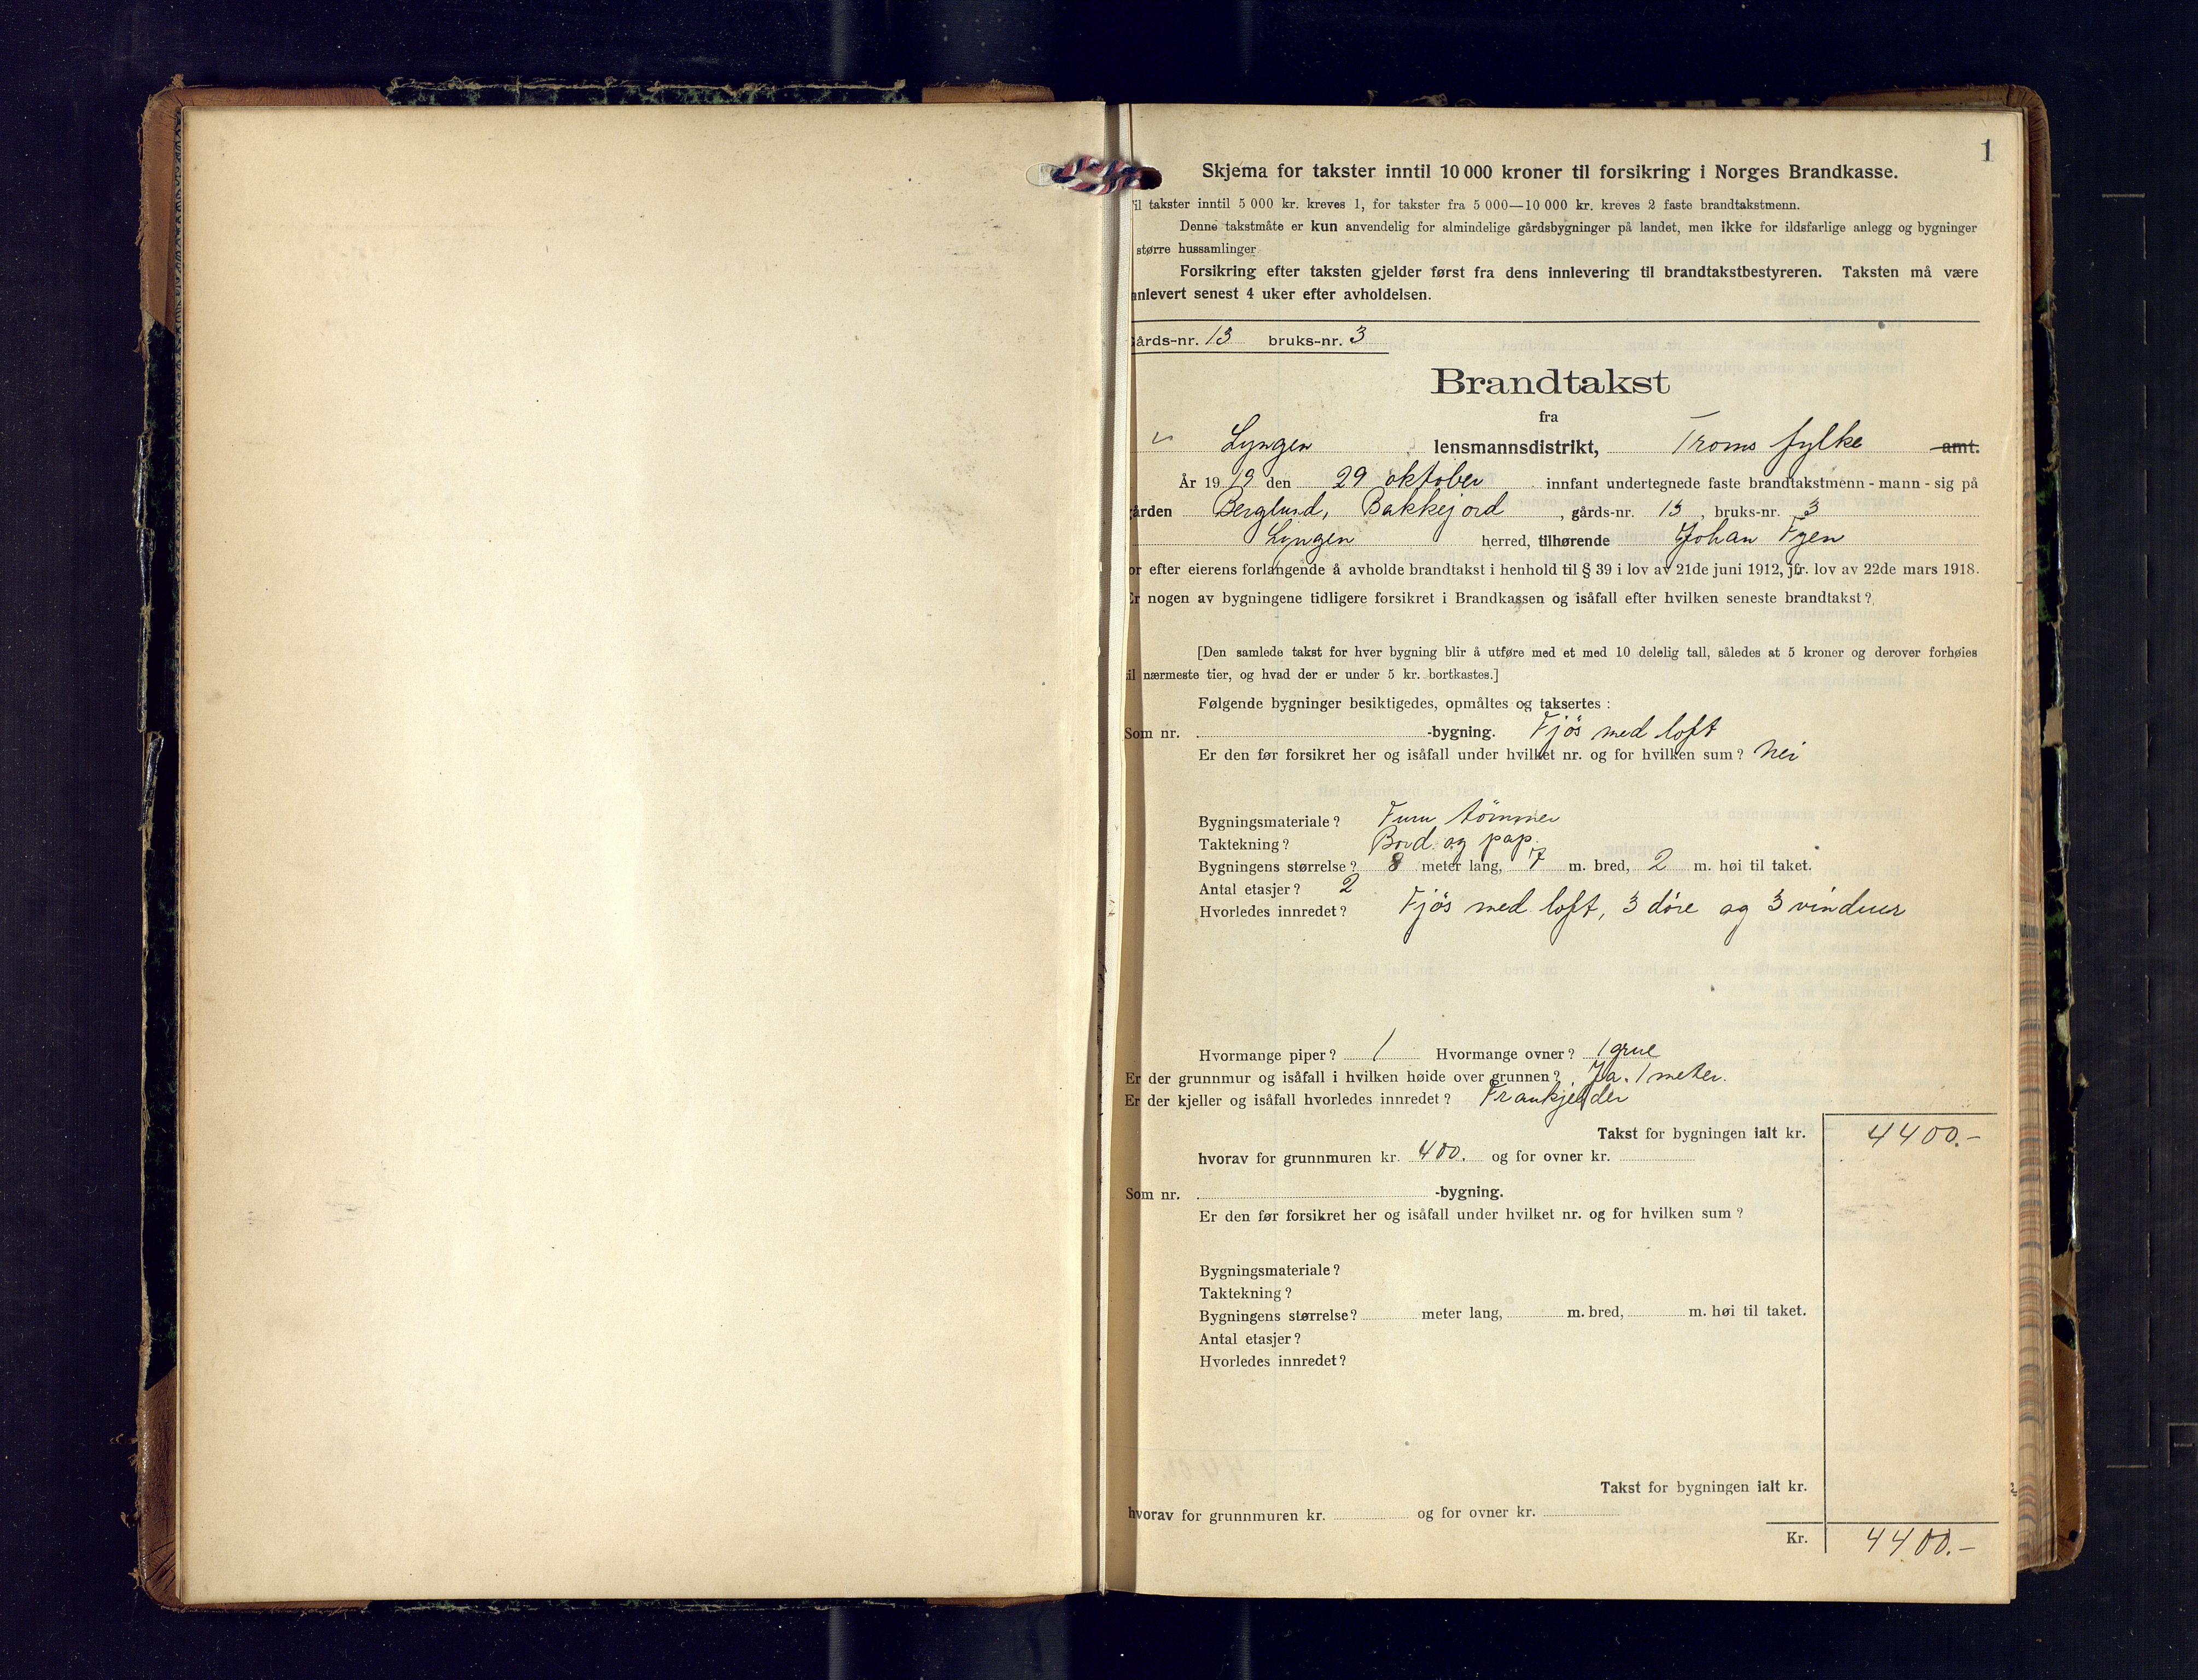 1
Skjema for takster inntil 10 000 kroner til forsikring i Norges Brandkasse.
il takster inntil 5 000 kr. kreves 1, for takster fra 5 000—10 000 kr. kreves 2 faste brandtakstmenn.
Denne takstmåte er kun anvendelig for almindelige gårdsbygninger på landet, men ikke for ildsfarlige anlegg og bygninger
større hussamlinger
Forsikring efter taksten gjelder først fra dens innlevering til brandtakstbestyreren. Taksten må være
nnlevert senest 4 uker efter avholdelsen.
årds-nr. 13 bruks-nr. 3
Brandtakst
fra
Lyngen lensmannsdistrikt, Troms fylke amt.
År 1919 den 29 oktober innfant undertegnede faste brandtakstmenn - mann - sig på
gården Berglund, Bakkejord, gårds-nr. 13, bruks-nr. 3
Lyngen herred, tilhørende Johan Fyen
or efter eierens forlangende å avholde brandtakst i henhold til § 39 i lov av 21de juni 1912, jfr. lov av 22de mars 1918.
Er nogen av bygningene tidligere forsikret i Brandkassen og isåfall efter hvilken seneste brandtakst?
[Den samlede takst for hver bygning blir å utføre med et med 10 delelig tall, således at 5 kroner og derover forhøies
il nærmeste tier, og hvad der er under 5 kr. bortkastes.]
Følgende bygninger besiktigedes, opmåltes og taksertes:
Som nr. -bygning. Fjøs med loft
Er den før forsikret her og isåfall under hvilket nr. og for hvilken sum? Nei
Bygningsmateriale? Furu tømmer
Taktekning? Bord og pap.
Bygningens størrelse? 8 meter lang, 7 m. bred, 2 m. høi til taket.
Antal etasjer? 2
Hvorledes innredet? Fjøs med loft, 3 døre og 3 vinduer
Hvormange piper? 1 Hvormange ovner? 1 grue
Er der grunnmur og isåfall i hvilken høide over grunnen? Ja. 1 meter.
Er der kjeller og isåfall hvorledes innredet? Trankjelder
Takst for bygningen ialt kr. 4400.-
hvorav for grunnmuren kr. 400. og for ovner kr.
Som nr. -bygning.
Er den før forsikret her og isåfall under hvilket nr. og for hvilken sum?
Bygningsmateriale?
Taktekning?
Bygningens størrelse? meter lang, m. bred, m. høi til taket.
Antal etasjer?
Hvorledes innredet?
Takst for bygningen ialt kr.
hvorav for grunnmuren kr. og for ovner kr.
Kr. 4400.-